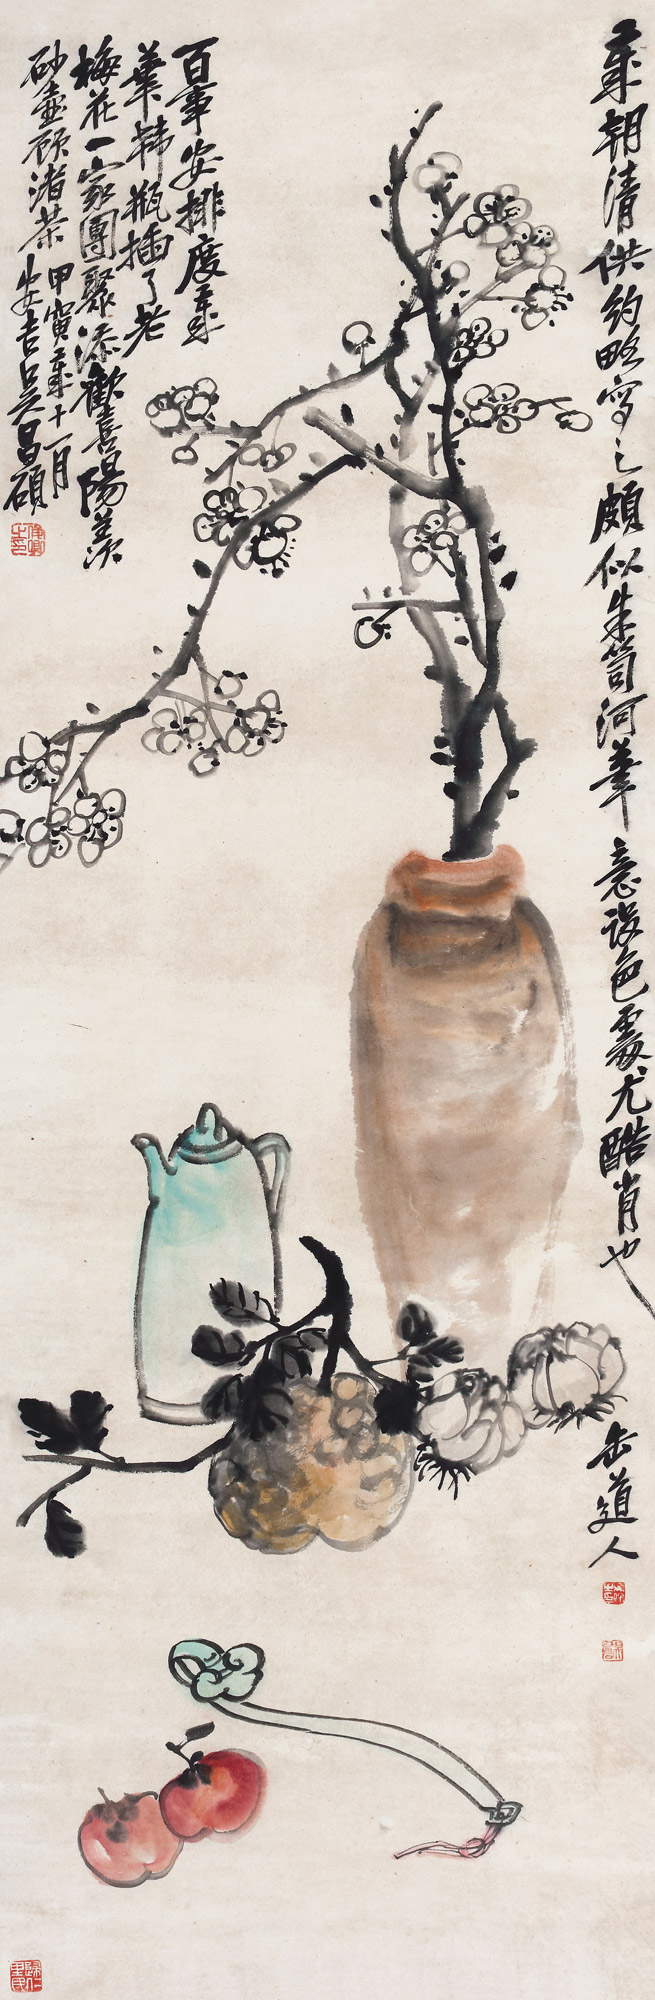 歲朝清供約略寫之頗似朱笥河筆意設色處尤酷肖也
缶道人
百事安排度歲
華韓瓶插了老
梅花一家團聚添歡喜陽羨
砂壺顧渚茶
甲寅歲十一月
安吉吳昌碩
俊卿之印
歸仁里民